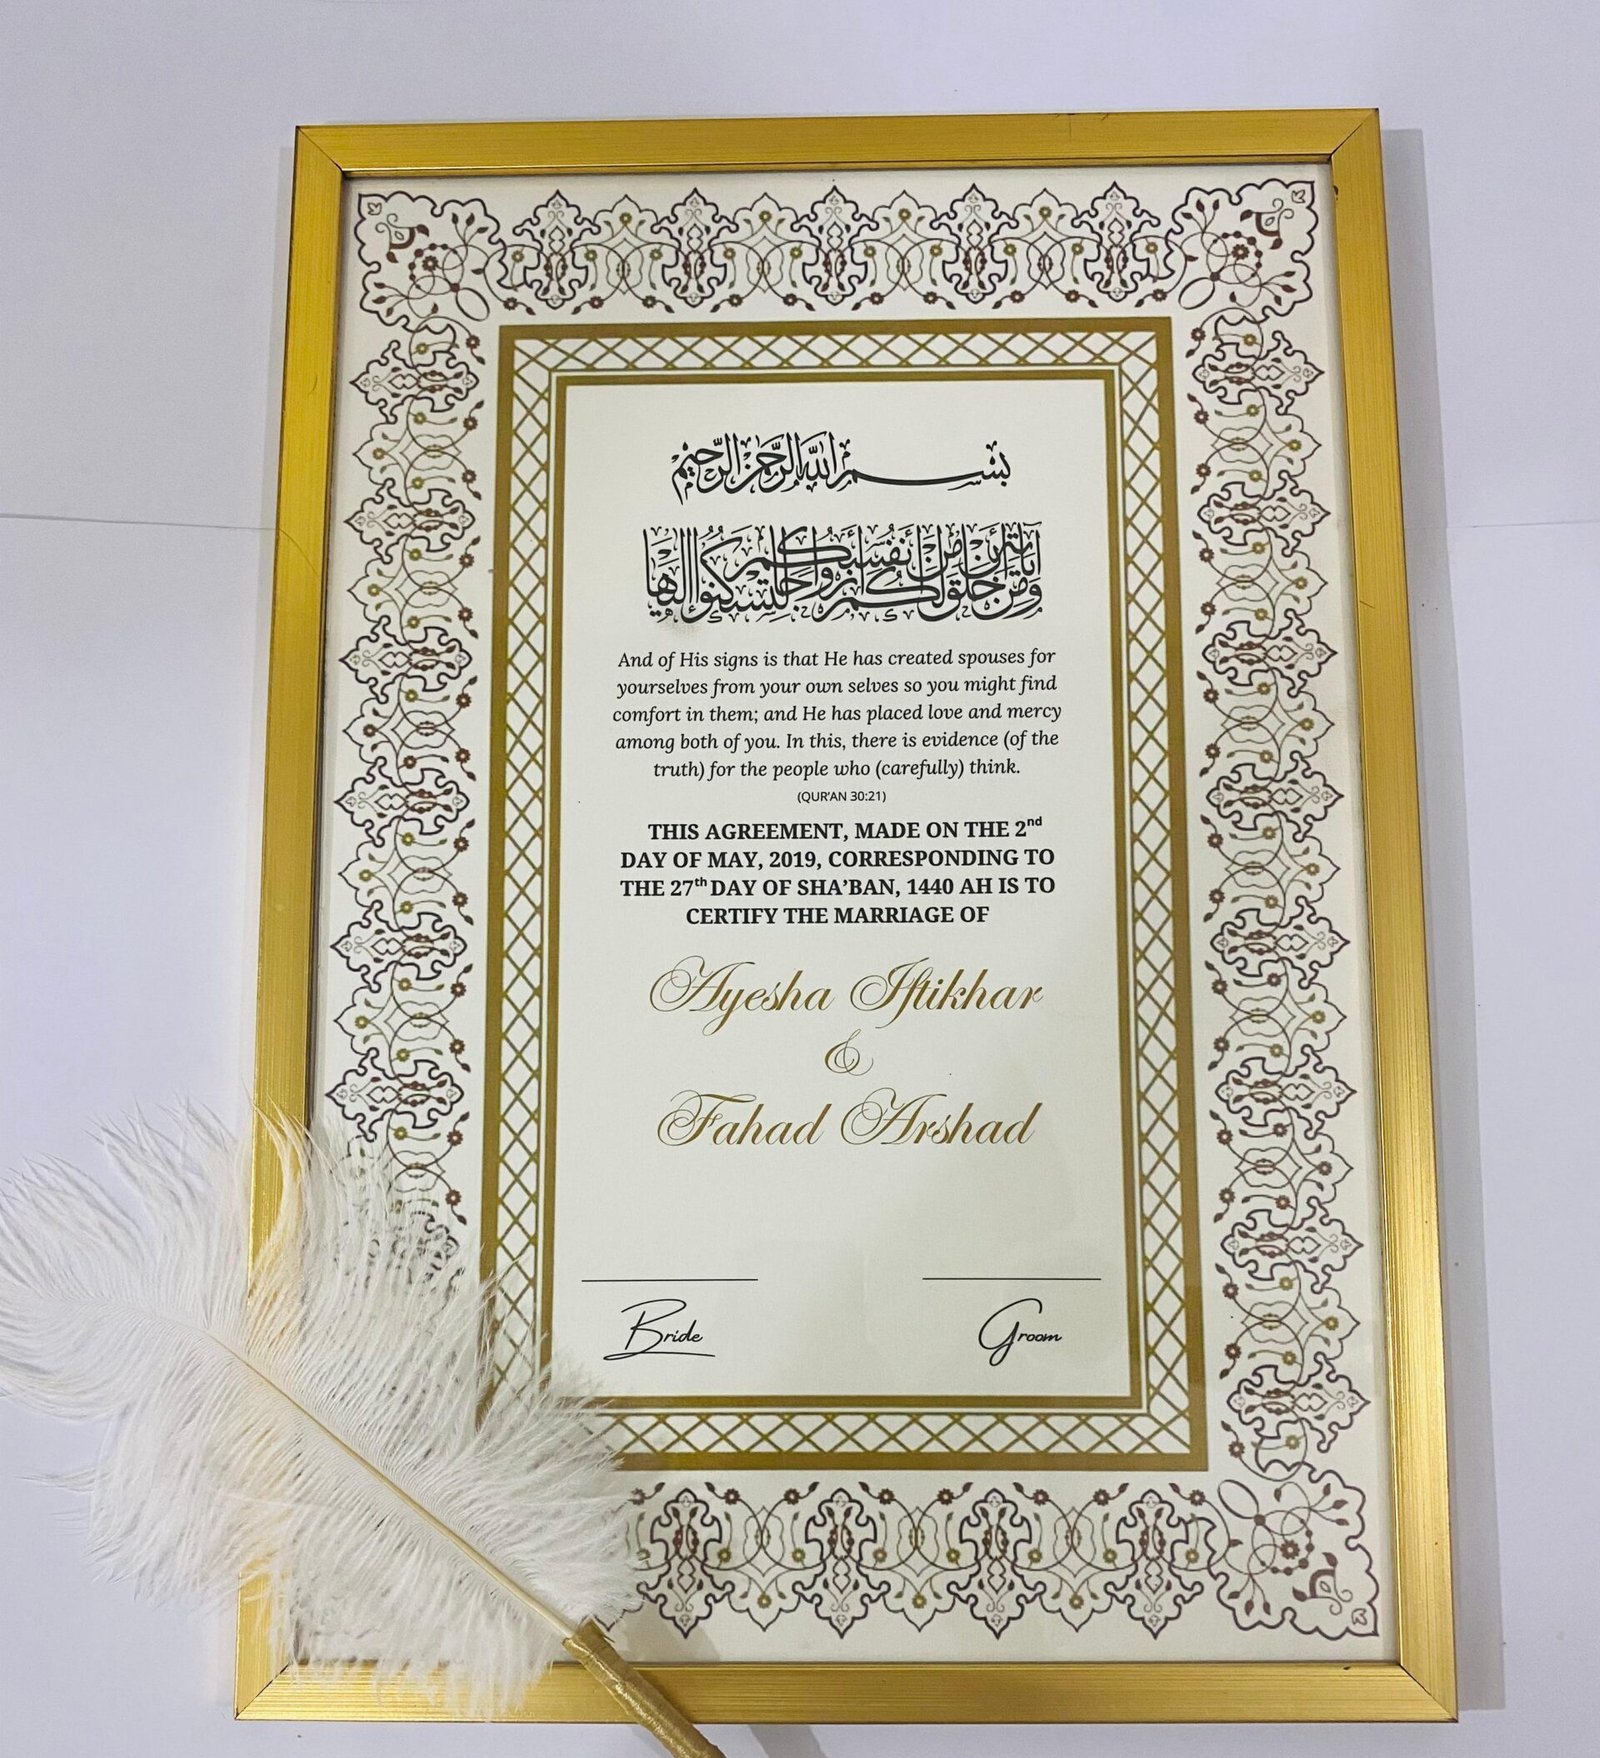 بسم الله الرحمن الرحيم
ومن آياته أن خلق لكم من أنفسكم أزواجا لتسكنوا إليها
And of His signs is that He has created spouses for
yourselves from your own selves so you might find
comfort in them; and He has placed love and mercy
among both of you. In this, there is evidence (of the
truth) for the people who (carefully) think.
(QUR'AN 30:21)
THIS AGREEMENT, MADE ON THE 2nd
DAY OF MAY, 2019, CORRESPONDING TO
THE 27th DAY OF SHA'BAN, 1440 AH IS TO
CERTIFY THE MARRIAGE OF
Ayesha Iftikhar
&
Fahad Arshad
Bride
Groom